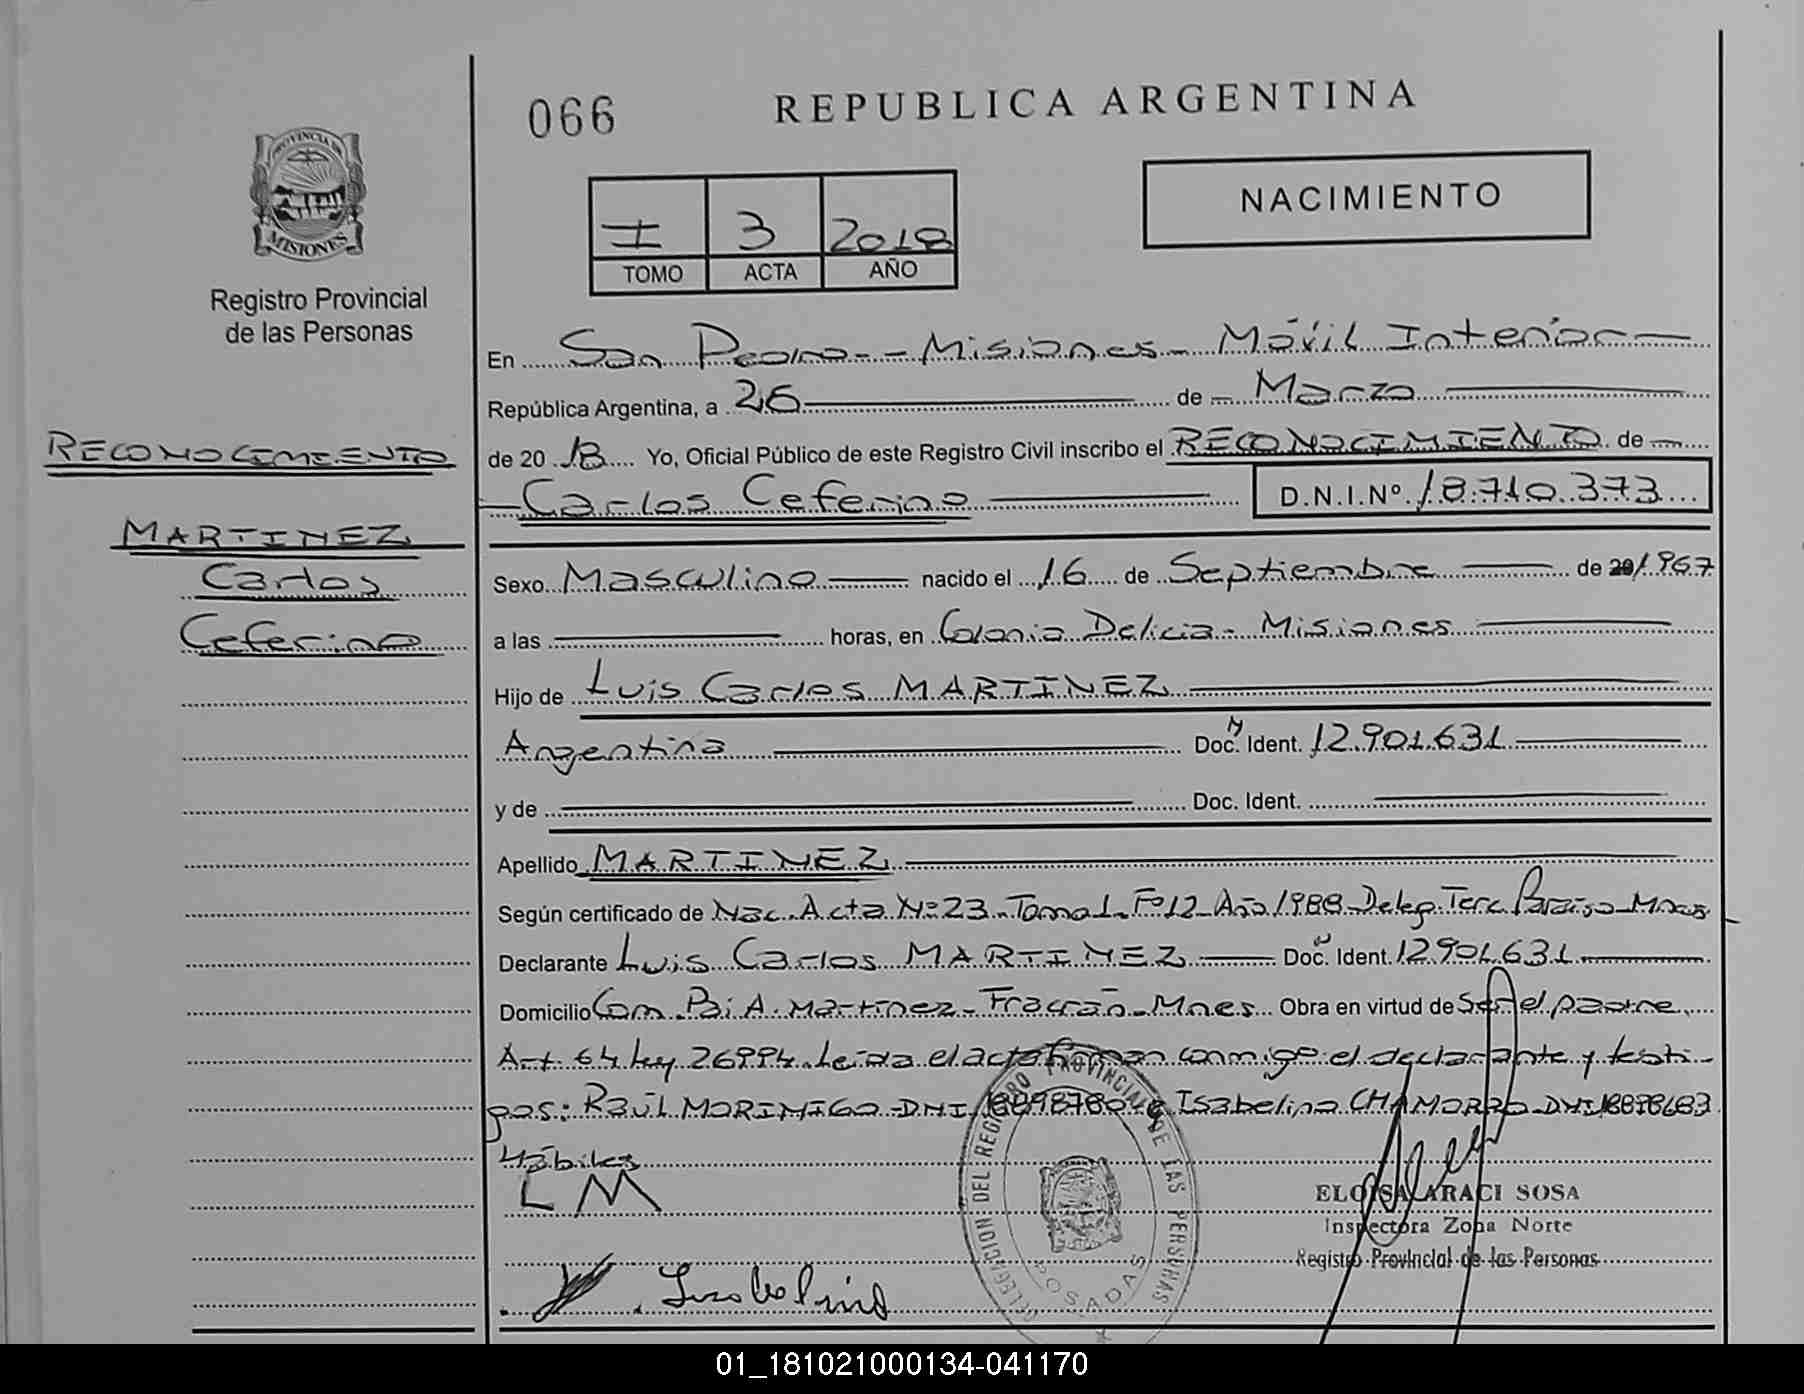 066
REPUBLICA ARGENTINA
PROVINCIA DE
MISIONES
Registro Provincial
de las Personas
NACIMIENTO
I 3 2018
TOMO ACTA AÑO
En San Pedro - Misiones - Móvil Interior
República Argentina, a 26 de Marzo
de 20 18 Yo, Oficial Público de este Registro Civil inscribo el RECONOCIMIENTO de
Carlos Ceferino D.N.I.Nº. 18.710.373
RECONOCIMIENTO
MARTINEZ
Carlos
Ceferino
Sexo Masculino nacido el 16 de Septiembre de 20 1967
a las horas, en Colonia Delicia - Misiones
Hijo de Luis Carlos MARTINEZ
Argentina Doc. N Ident. 12.901.631
y de Doc. Ident.
Apellido MARTINEZ
Según certificado de Nac. Acta Nº 23 - Tomo 1 - Fº 12 - Año 1988 - Deleg. Terc. Paraiso - Mnes
Declarante Luis Carlos MARTINEZ Doc. N Ident. 12.901.631
Domicilio Com. Pai A. Martinez - Fracrán - Mnes. Obra en virtud de Ser el padre
Art. 64 Ley 26994. Leida el acta firman conmigo el declarante y testi-
gos: Raúl MORINIGO - DNI e Isabelino CHAMORRO - DNI
Hábiles
LM
ELOISA ARACI SOSA
Inspectora Zona Norte
Registro Provincial de las Personas
Isabelino
DELEGACION DEL REGISTRO PROVINCIAL DE LAS PERSONAS
POSADAS
01_181021000134-041170